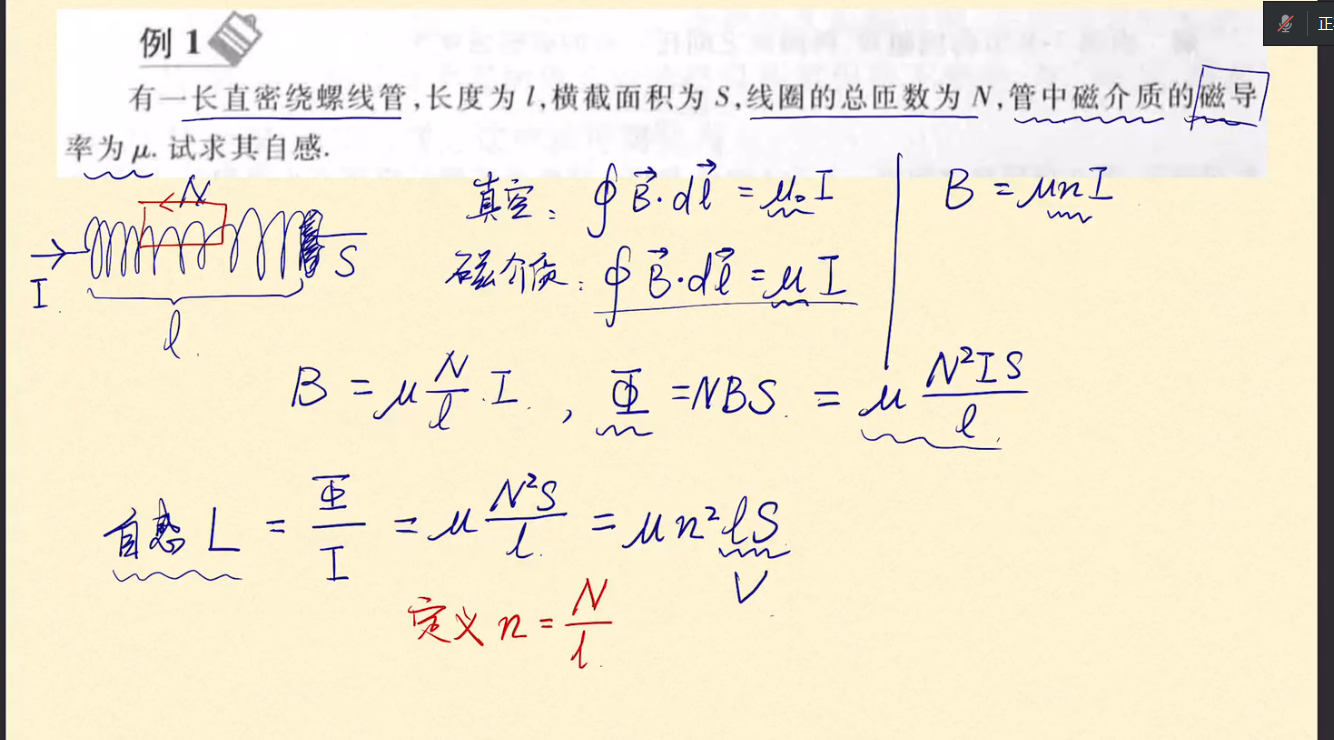 正
例 1
有一长直密绕螺线管,长度为 l,横截面积为 S,线圈的总匝数为 N,管中磁介质的磁导
率为 μ. 试求其自感.
N
I
S
l
真空: ∮B⃗·dl⃗ = μ₀I
B = μnI
磁介质: ∮B⃗·dl⃗ = μI
B = μ N/l · I , Φ = NBS = μ N²IS/l
自感 L = Φ/I = μ N²S/l = μn²lS
V
定义 n = N/l